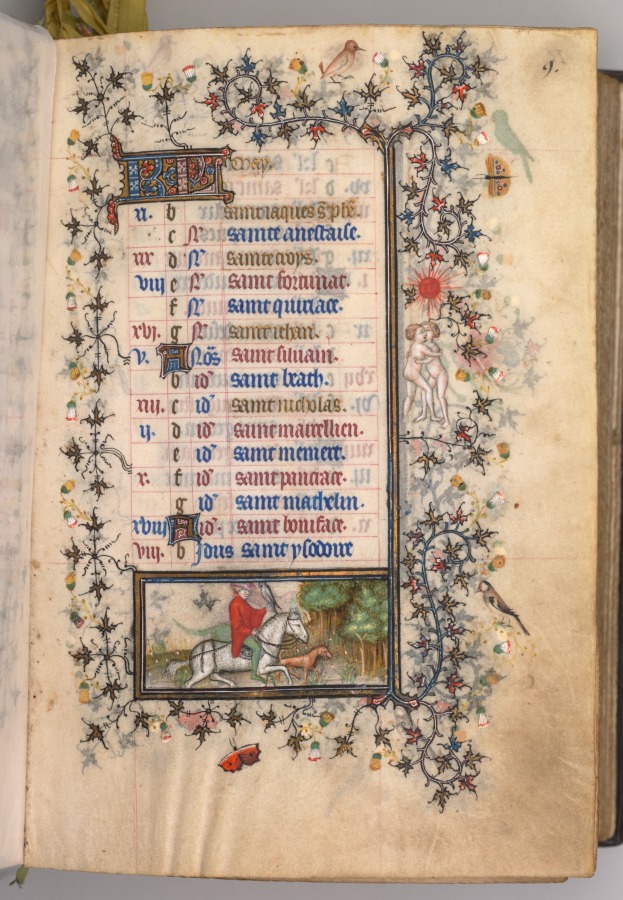 9.
KL May.
xi. b saint iaques s phe.
c N saincte anestaise.
xix d N sainte croys.
viii e N saint fortunat.
f N saint quiriace.
xvi. g N saint iehan.
v. A Nōs saint siluain.
b id saint beath.
xiii. c id saint nicholas.
ii. d id saint
e id saint
x. f id saint pancrace.
g id saint mathelin.
xviii A id. saint boniface.
viii. b Idus saint ysodoire